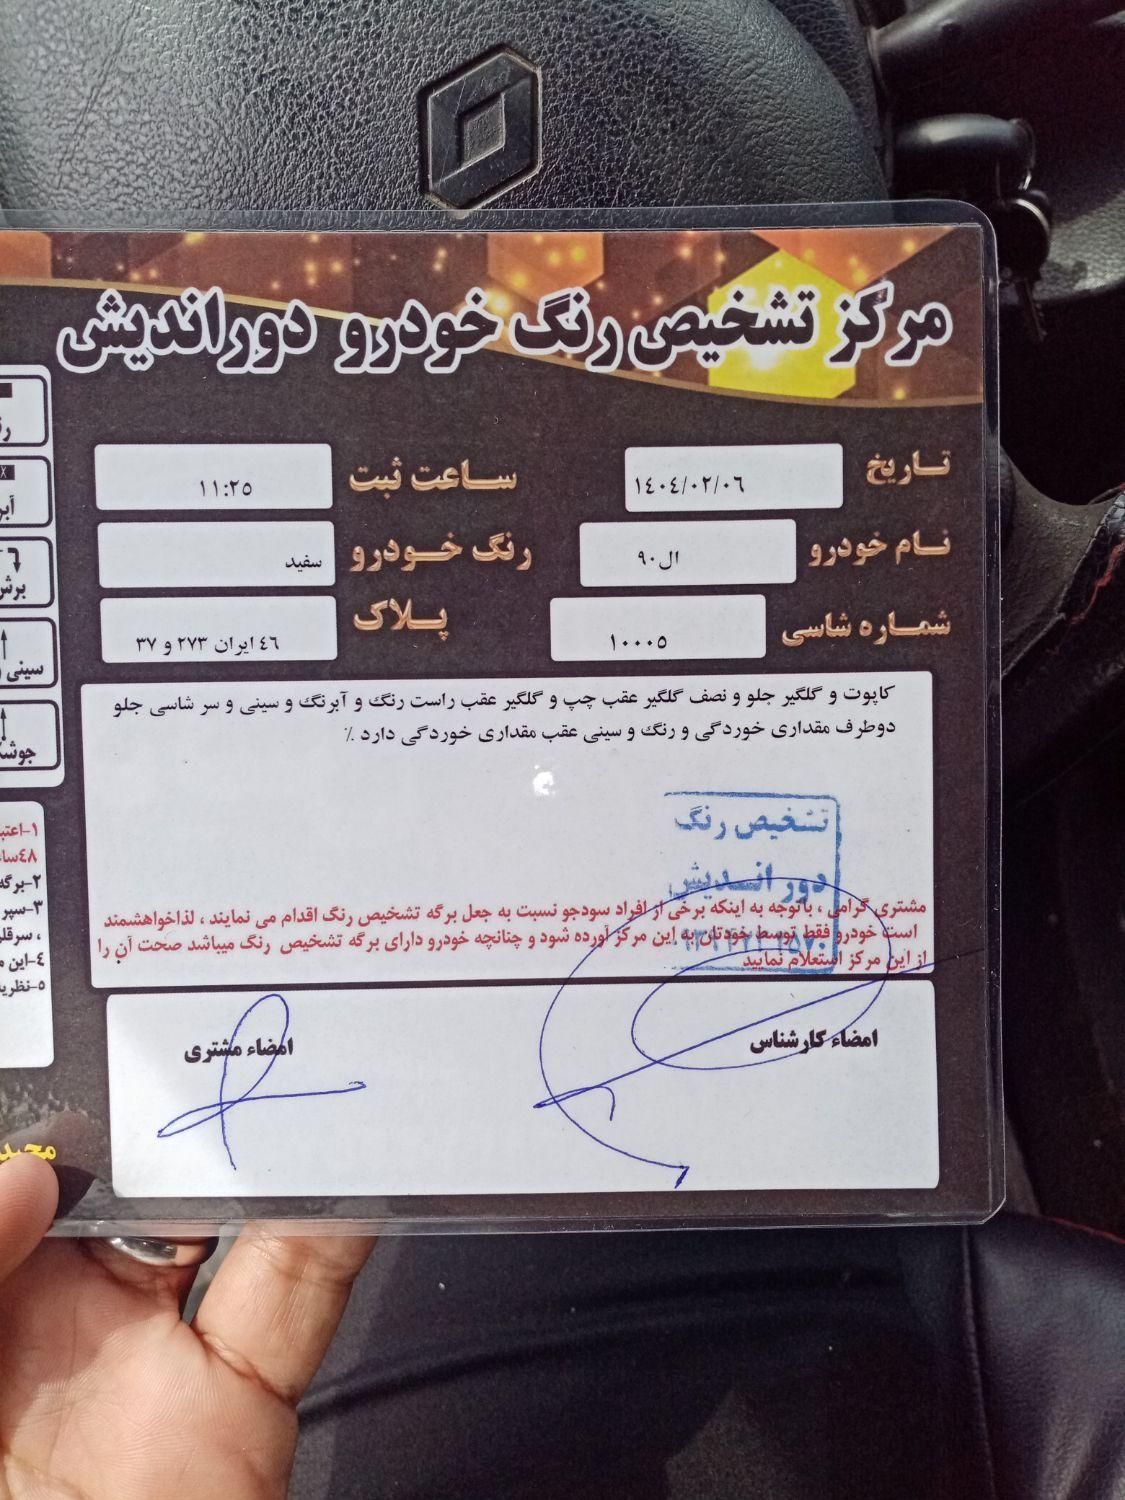 مرکز تشخیص رنگ خودرو دوراندیش
تاریخ ۱۴۰۴/۰۲/۰۶ ساعت ثبت ۱۱:۲۵
نام خودرو ال۹۰ رنگ خودرو سفید
شماره شاسی ۱۰۰۰۵ پلاک ٤٦ ایران ۲۷۳ و ۳۷
کاپوت و گلگیر جلو و نصف گلگیر عقب چپ و گلگیر عقب راست رنگ و آبرنگ و سینی و سر شاسی جلو
دوطرف مقداری خوردگی و رنگ و سینی عقب مقداری خوردگی دارد ٪
تشخیص رنگ
دور اندیش
مشتری گرامی ، باتوجه به اینکه برخی از افراد سودجو نسبت به جعل برگه تشخیص رنگ اقدام می نمایند ، لذاخواهشمند
است خودرو فقط توسط خودتان به این مرکز آورده شود و چنانچه خودرو دارای برگه تشخیص رنگ میباشد صحت آن را
از این مرکز استعلام نمایید
امضاء کارشناس امضاء مشتری
برش
سینی
۲-برگه
۳-سپر
٤-این